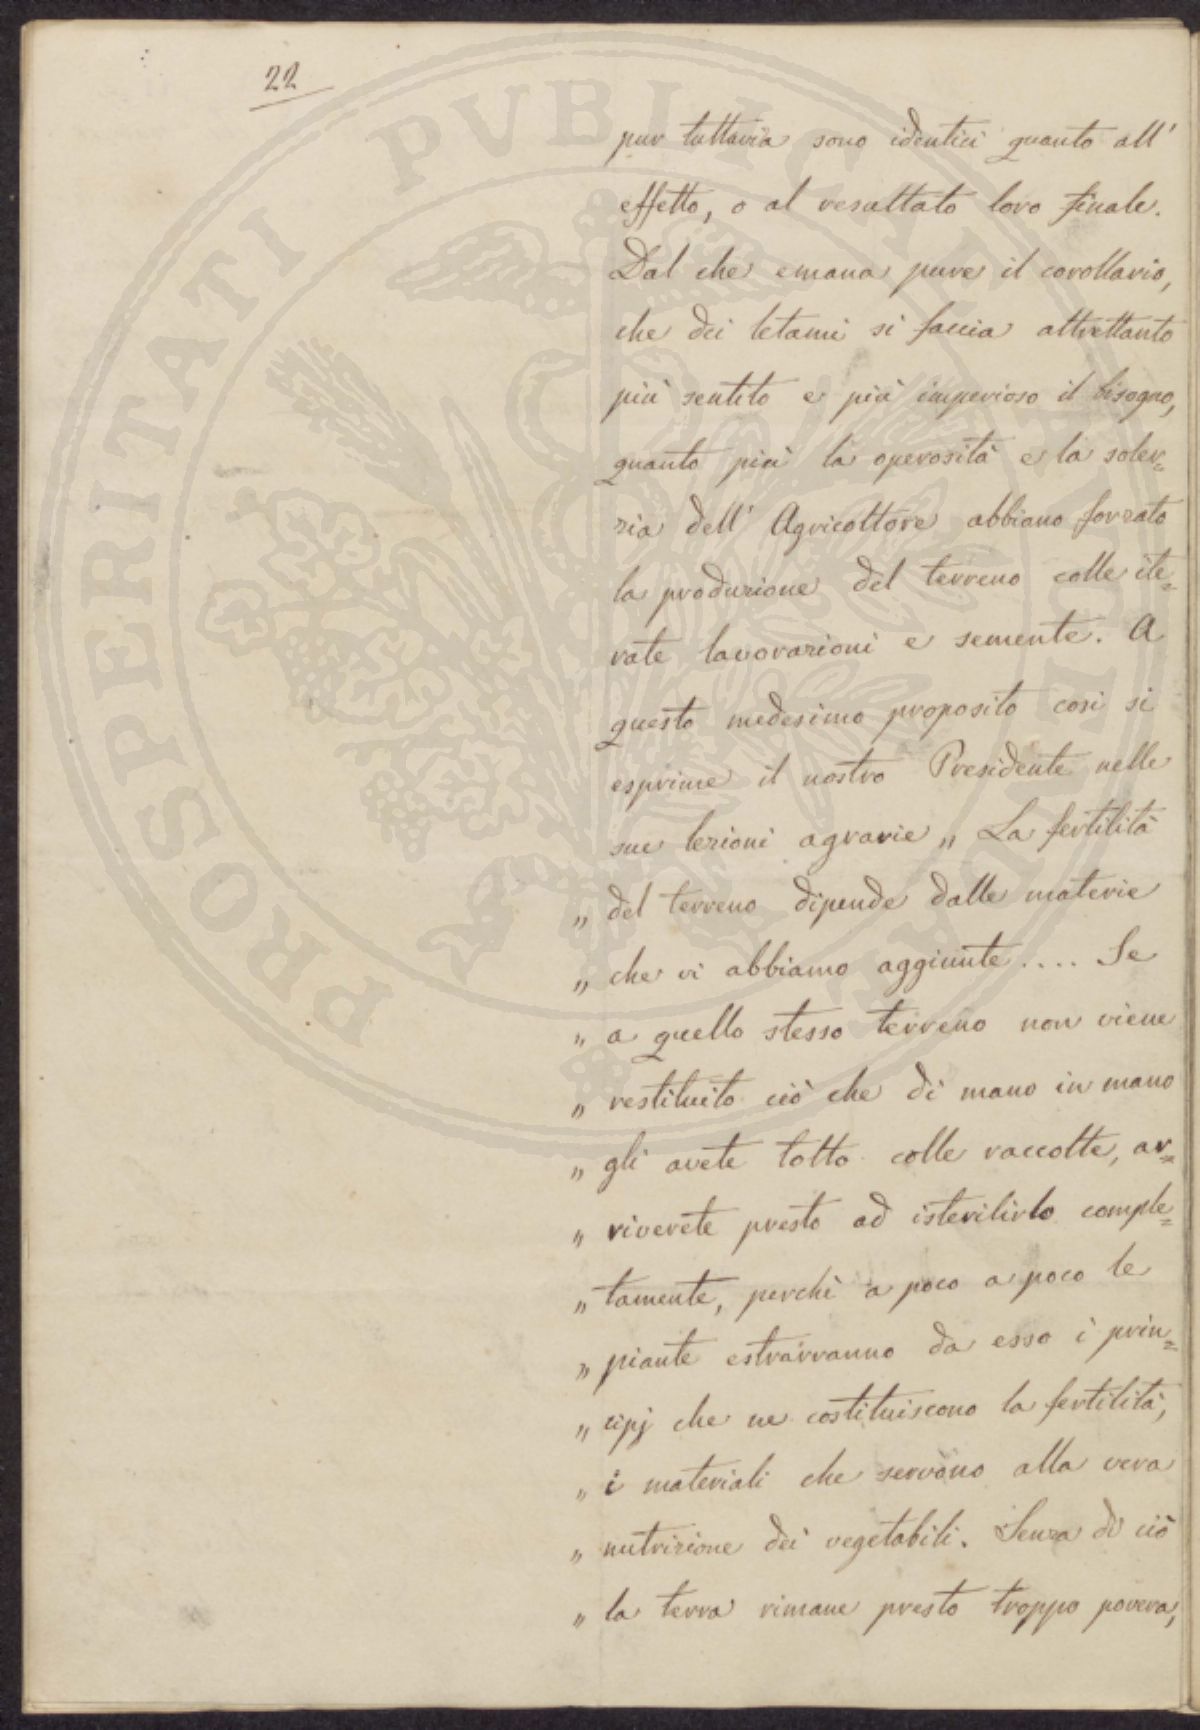 22
pur tuttavia sono identici quanto all'
effetto, o al resultato loro finale.
Dal che emana pure il corollario,
che dei letami si faccia altrettanto
più sentito e più imperioso il bisogno,
quanto più la operosità e la soler=
zia dell' Agricoltore abbiano forzato
la produzione del terreno colle ite=
rate lavorazioni e semente. A
questo medesimo proposito così si
esprime il nostro Presidente nelle
sue lezioni agrarie „ La fertilità
„ del terreno dipende dalle materie
„ che vi abbiamo aggiunte .... Se
„ a quello stesso terreno non viene
„ restituito ciò che di mano in mano
„ gli avete tolto colle raccolte, ar=
„ riverete presto ad isterilirlo comple=
„ tamente, perchè a poco a poco le
„ piante estrarranno da esso i prin=
„ cipj che ne costituiscono la fertilità,
„ i materiali che servono alla vera
„ nutrizione dei vegetabili. Senza di ciò
„ la terra rimane presto troppo povera,
PROSPERITATI PVBLICAE AVGENDAE